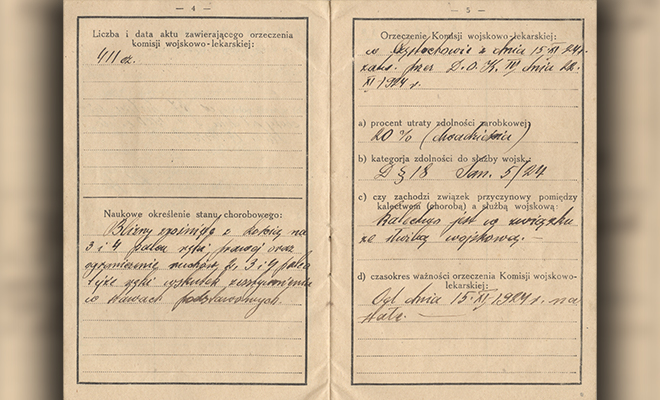 — 4 —
Liczba i data aktu zawierającego orzeczenia
komisji wojskowo-lekarskiej:
411
Naukowe określenie stanu chorobowego:
Blizny z kością na
3 i 4 palcu ręki prawej oraz
ograniczenie ruchów 2, 3 i 4 palca
tejże ręki wskutek zesztywnienia
w stawach podstawowych.
— 5 —
Orzeczenie Komisji wojskowo-lekarskiej:
w Częstochowie z dnia 15 XI 24 r.
zatw. przez D.O.K. IV dnia 22
XI 1924 r.
a) procent utraty zdolności zarobkowej:
20 %
b) kategorja zdolności do służby wojsk.:
D § 18 San. 5/24
c) czy zachodzi związek przyczynowy pomiędzy
kalectwem (chorobą) a służbą wojskową:
Kalectwo jest w związku
ze służbą wojskową. —
d) czasokres ważności orzeczenia Komisji wojskowo-
lekarskiej:
Od dnia 15 XI 1924 r. na
stałe. —